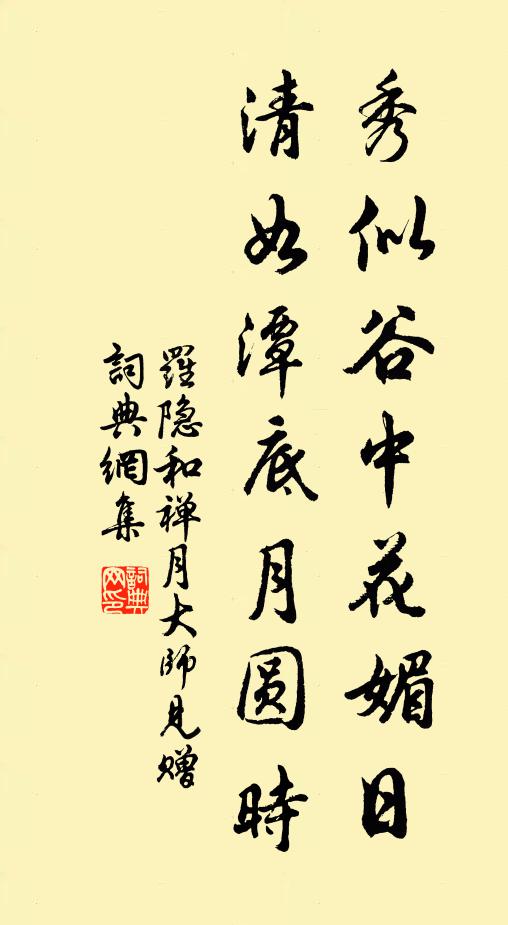 秀似谷中花媚日
清如潭底月圆時
羅隐和禅月大师見赠
詞典網集
詞典网印